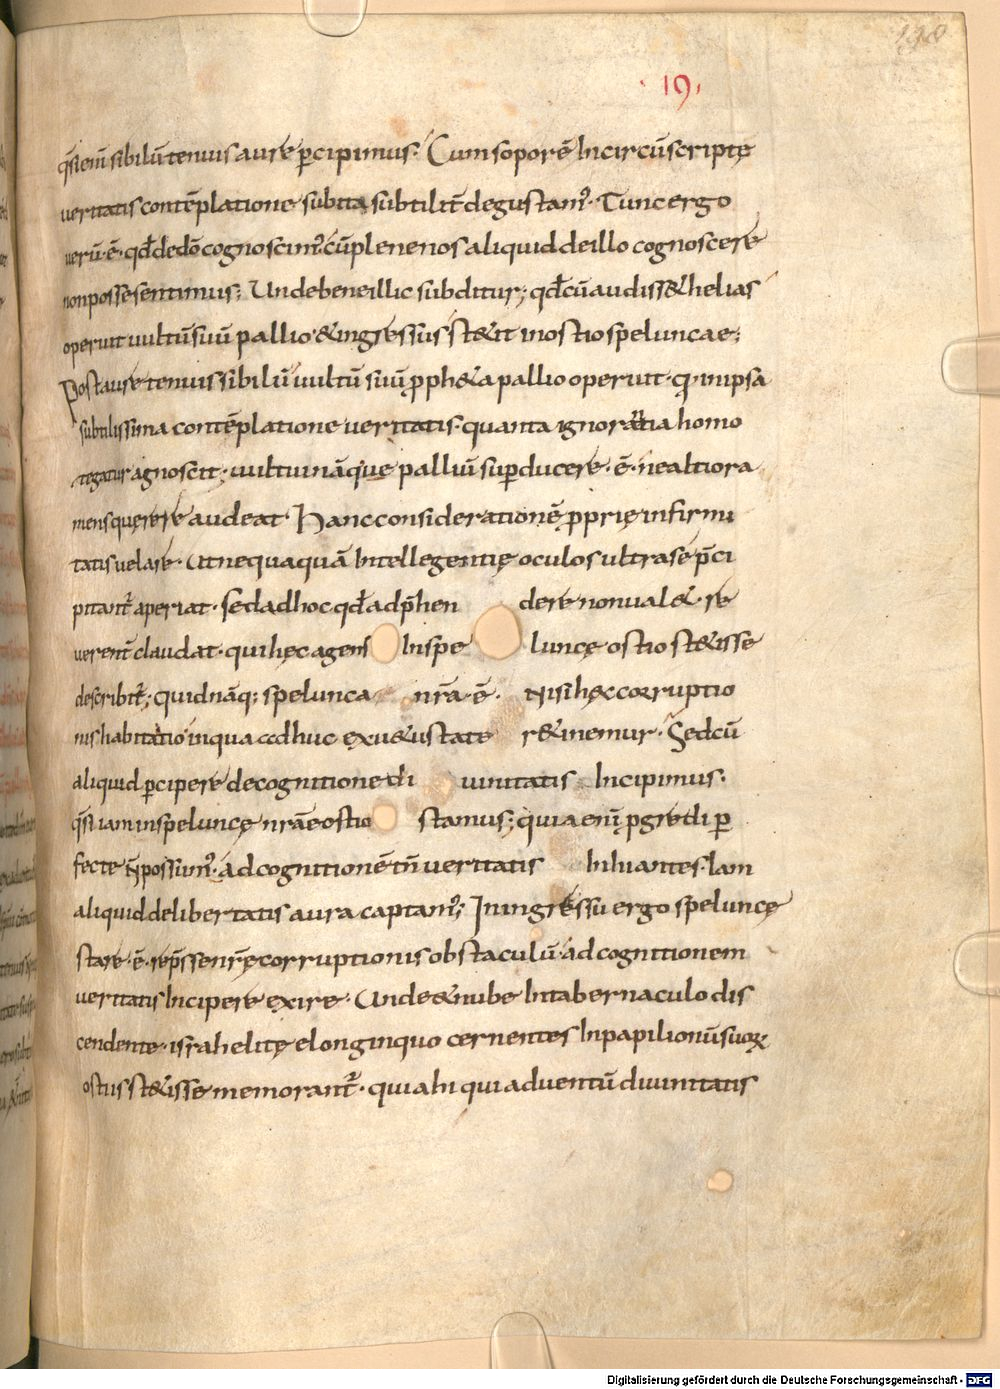 190
·19·
q̄si eni᷎ sibilū tenuis aure ꝑcipimus· Cum soporē Incircūscriptę
ueritatis contēplatione subita subtilit̄ degustam᷒· Tunc ergo
uerū·ē· qd̄ de dō cognoscim᷒· cū plene nos aliquid de illo cognoscere
non posse sentimus; Unde bene illic subditur; qd̄ cū audiss& helias
operuit uultū suū pallio & ingressus st&it in ostio speluncae;
Post aure tenuis sibilū uultū suū ꝓph&a pallio operuit· q· in ipsa
subtilissima contēplatione ueritatis· quanta ignorantia homo
tegatur agnoscit; uultui nāque palliū suꝑducere·ē· ne altiora
mens querere audeat· Hanc considerationē ꝓprię infirmi
tatis uelare· Ut nequaquā Intellegentię oculos ultra se p̄ci
pitant̄ aperiat· sed ad hoc qd̄ adp̄hen dere non ual& · re
uerent̄ claudat· qui hęc agens In spe luncę ostio st&isse
describit̄; quid nāq; spelunca nr̄a·ē· Nisi hęc corruptio
nis habitatio in qua adhuc ex u&ustate r&inemur· Sed cū
aliquid ꝑcipere de cognitione di uinitatis Incipimus·
q̄si iam in speluncę nr̄ae ostio stamus; quia eni᷎ ꝓgredi ꝑ
fecte n̄ possum᷒· ad cognitionē tn̄ ueritatis Inhiantes· Iam
aliquid de libertatis aura captam᷒; In ingressu ergo speluncę
stare·ē· rep̄sse nr̄ę corruptionis obstaculū· ad cognitionem
ueritatis Incipere exire· Unde & nube In tabernaculo dis
cendente· israhelitę e longinquo cernentes In papilionū suoꝝ
ostiis st&isse memorant̄· quia hi qui aduentū diuinitatis
Digitalisierung gefördert durch die Deutsche Forschungsgemeinschaft - DFG